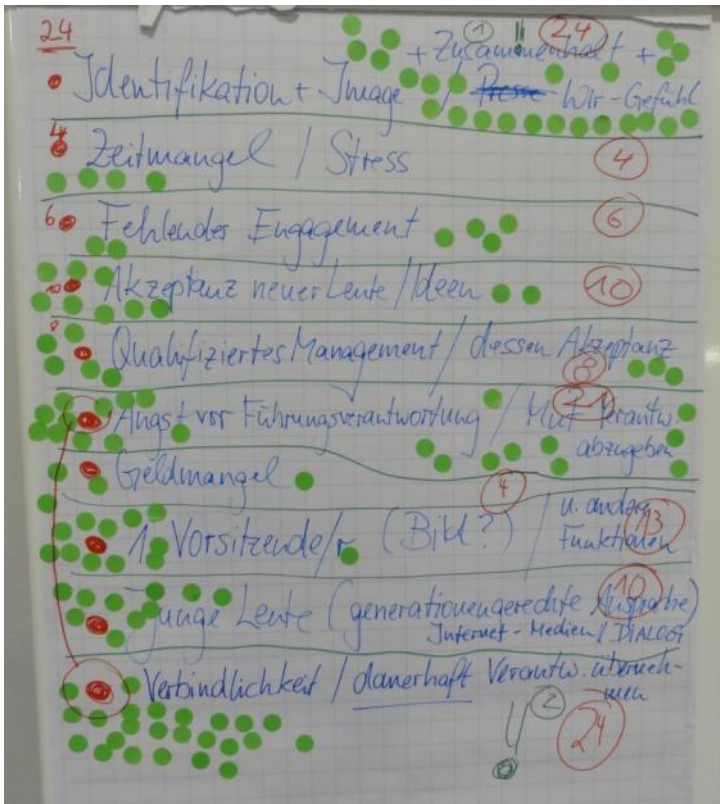 24 ① !! 24
+ Zusammenhalt +
Identifikation + Image / Presse Wir-Gefühl
4
Zeitmangel / Stress 4
6 Fehlendes Engagement 6
Akzeptanz neuer Leute / Ideen 10
Qualifiziertes Management / dessen Akzeptanz
8
Angst vor Führungsverantwortung / Mut Verantw. 21
abzugeben
Geldmangel 4
1. Vorsitzende/r (Bild?) / u. andere 13
Funktionen
Junge Leute (generationengerechte Ansprache) 10
Internet - Medien / DIALOG
Verbindlichkeit / dauerhaft Verantw. überneh-
men
! ② 24